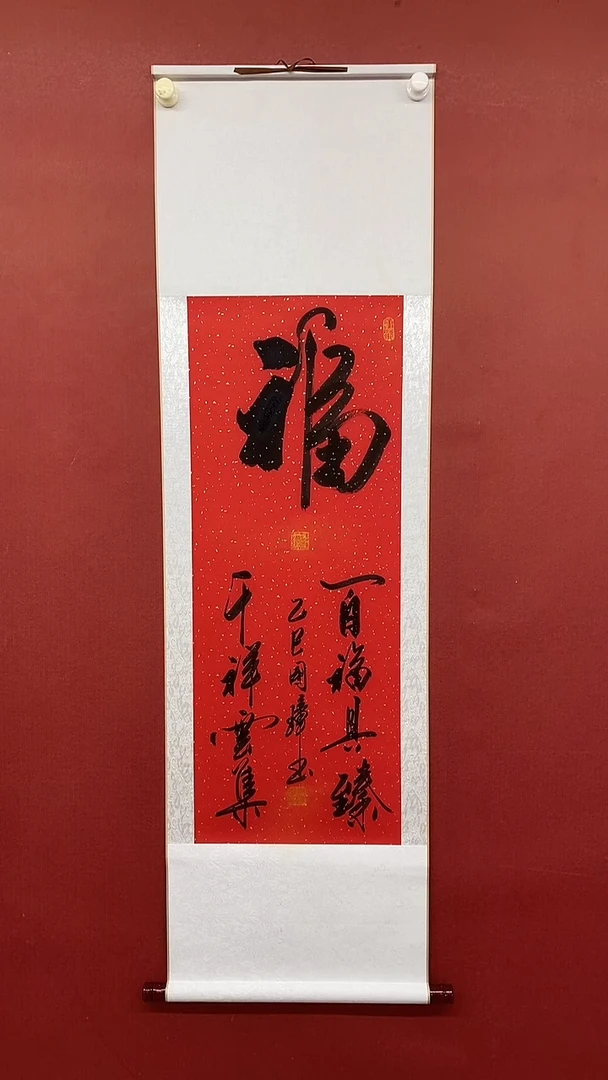 福
百福具臻
乙巳国璋书
千祥雲集